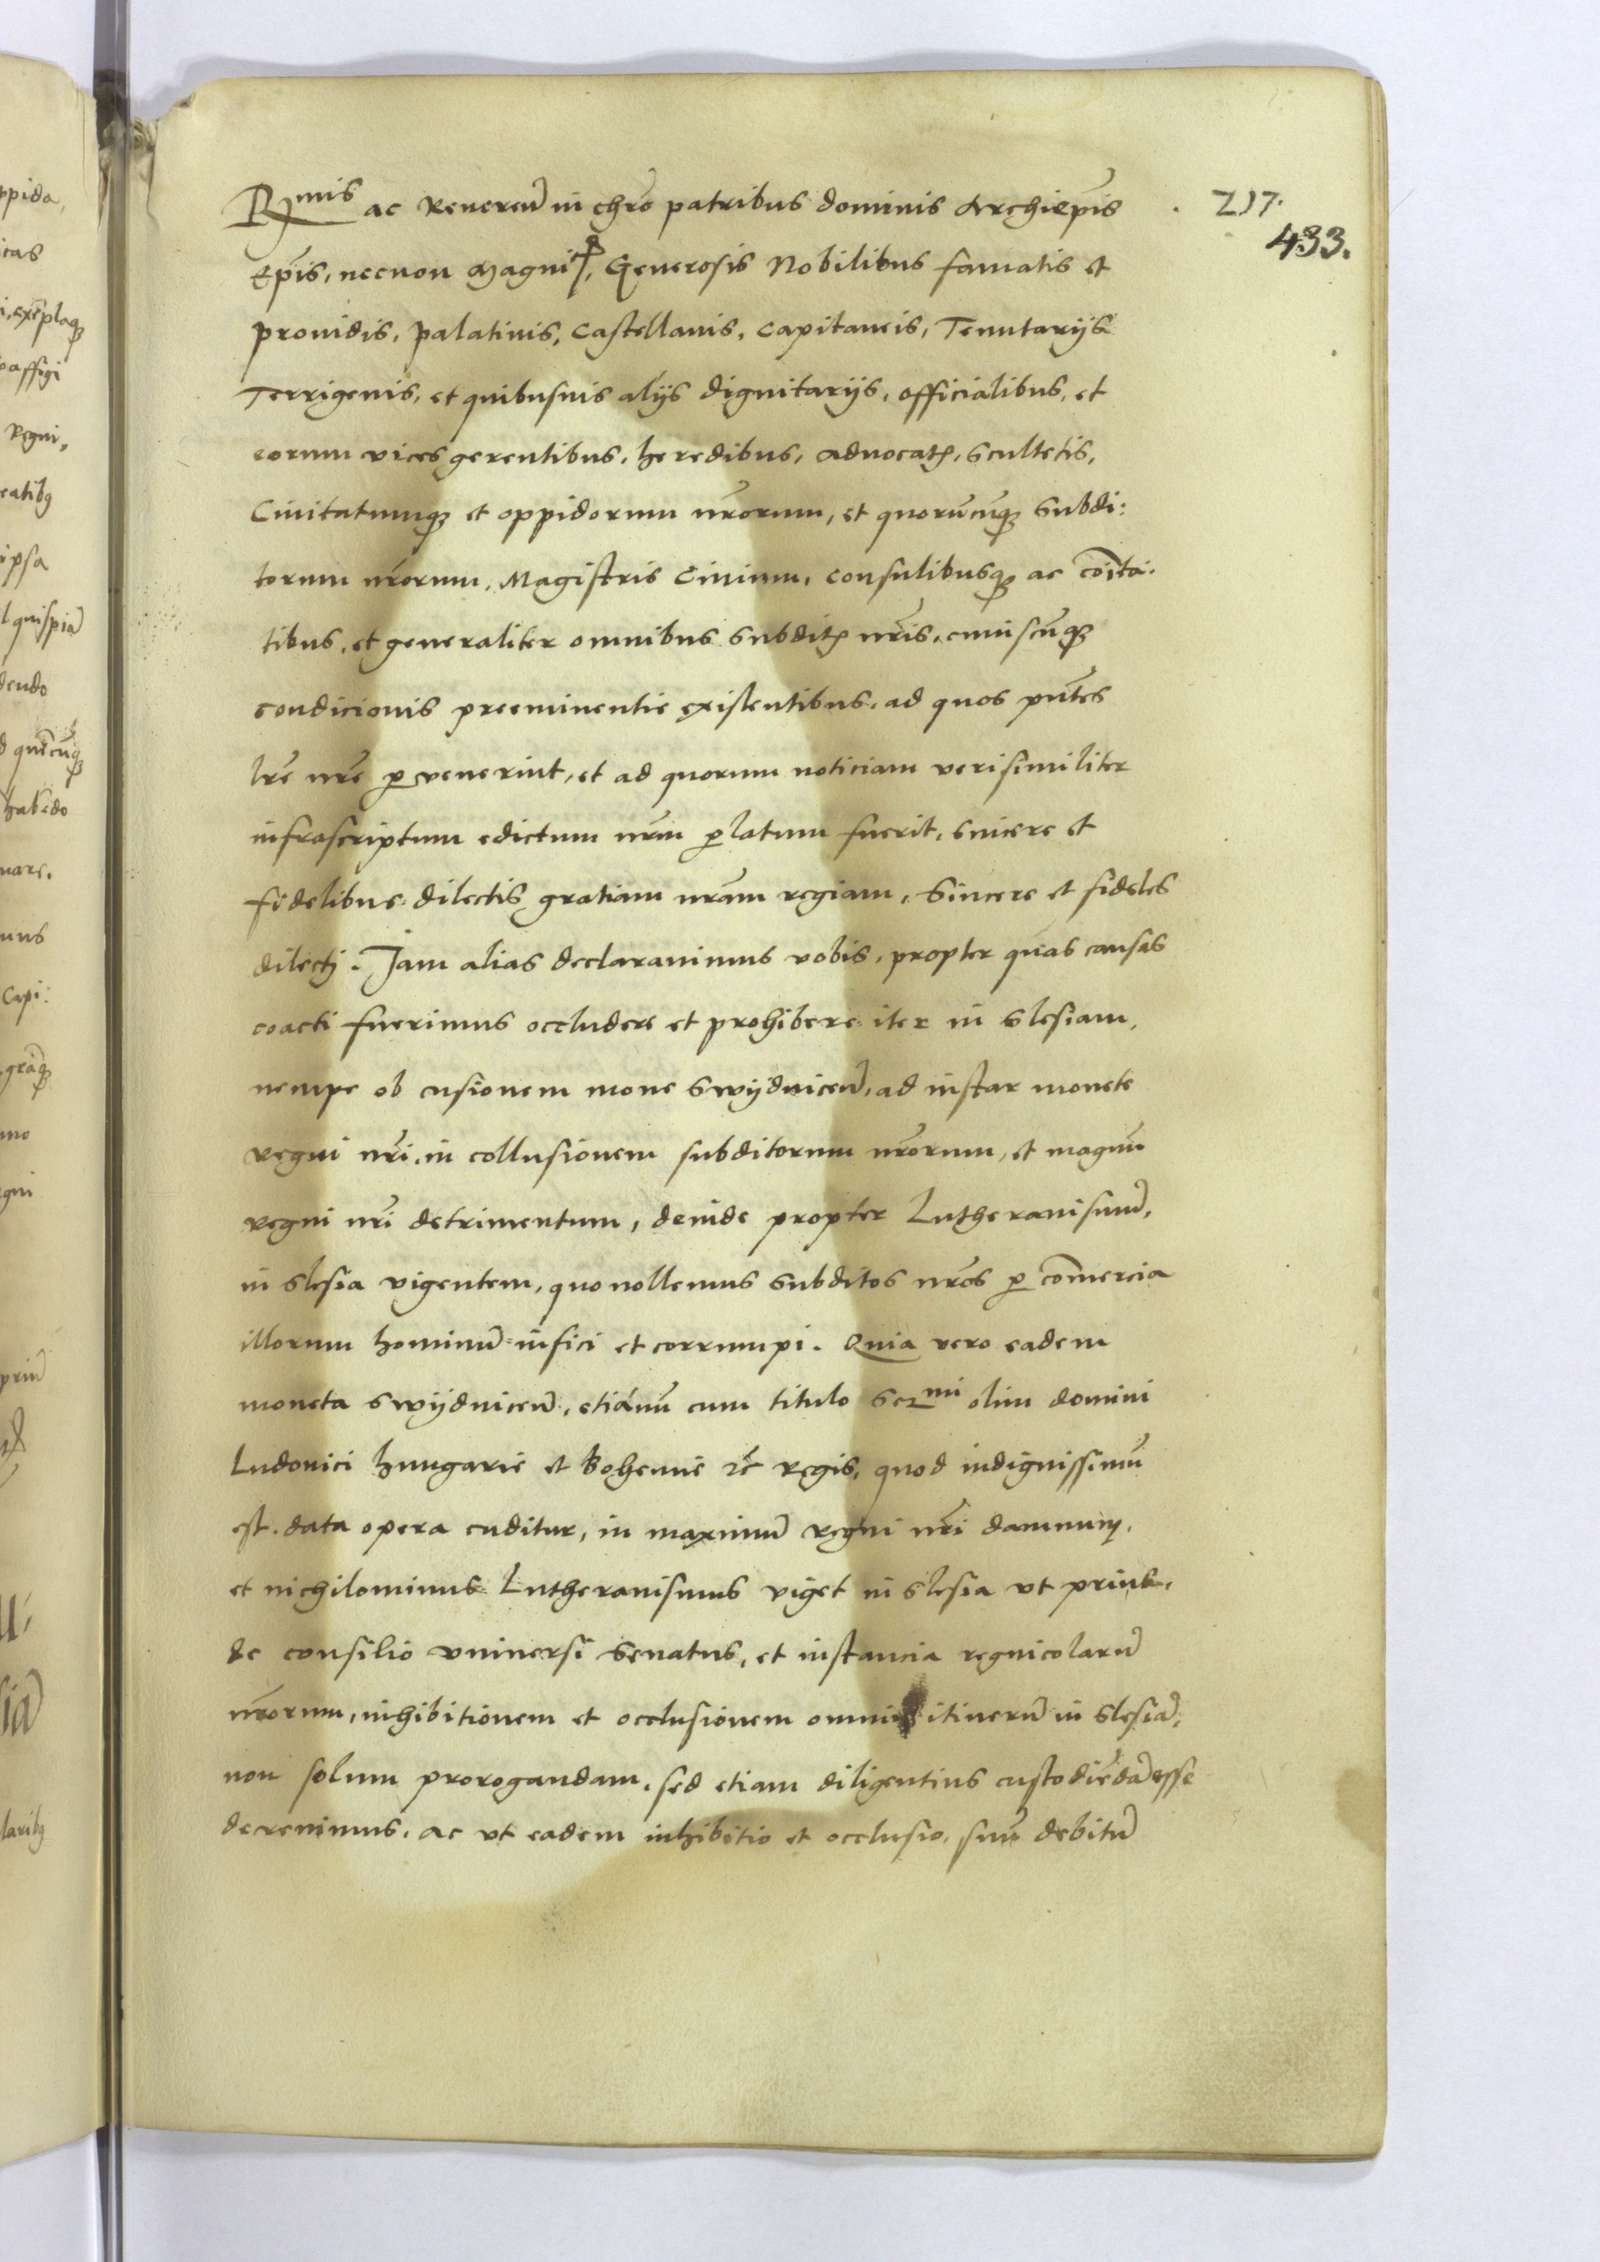 R<sup>mis</sup> ac Reueren̄ in chr̄o patribus dominis Archiep̄is
217.
433.
Ep̄is, necnon Magnif. Generosis Nobilibus famatis et
prouidis, palatinis, Castellanis, Capitaneis, Tenutarijs
Terrigenis, et quibusuis alijs dignitarijs, officialibus, et
eorum vices gerentibus, heredibus, aduocatꝭ, scultetis,
Ciuitatumqꝫ et oppidorum nr̄orum, et quorūcūqꝫ subdi:
torum nr̄orum, Magistris Ciuium, consulibusqꝫ ac cōita:
tibus, et generaliter omnibus subditꝭ nr̄is, cuiuscūqꝫ
condicionis preeminentie existentibus, ad quos pn̄tes
lr̄e nr̄e ꝑuenerint, et ad quorum noticiam verisimiliter
infrascriptum edictum nr̄m ꝑlatum fuerit, sincere et
fidelibus dilectis gratiam nr̄am regiam, Sincere et fideles
dilecti. Jam alias declarauimus vobis, propter quas causas
coacti fuerimus occludere et prohibere iter in Slesiam,
nempe ob cusionem mone Swÿdnicen̄, ad instar monete
regni nr̄i, in collusionem subditorum nr̄orum, et magnū
regni nr̄i detrimentum, deinde propter Lutheranismū,
in Slesia vigentem, quo nollemus subditos nr̄os ꝑ com̄ercia
illorum hominū infici et corrumpi. Quia vero eadem
moneta Swÿdnicen̄, etiānū cum titulo Ser<sup>mi</sup> olim domini
Ludouici hungarie et Bohemie ꝛc̄ regis, quod indignissimū
est, data opera cuditur, in maximū regni nr̄i damnum,
et nichilominus Lutheranismus viget in Slesia vt prius,
de consilio vniuersi Senatus, et instancia regnicolarū
nr̄orum, inhibitionem et occlusionem omniū itinerū in Slesiā,
non solum prorogandam, sed etiam diligentius custodiēdā esse
decreuimus, ac vt eadem inhibitio et occlusio, suū debitū